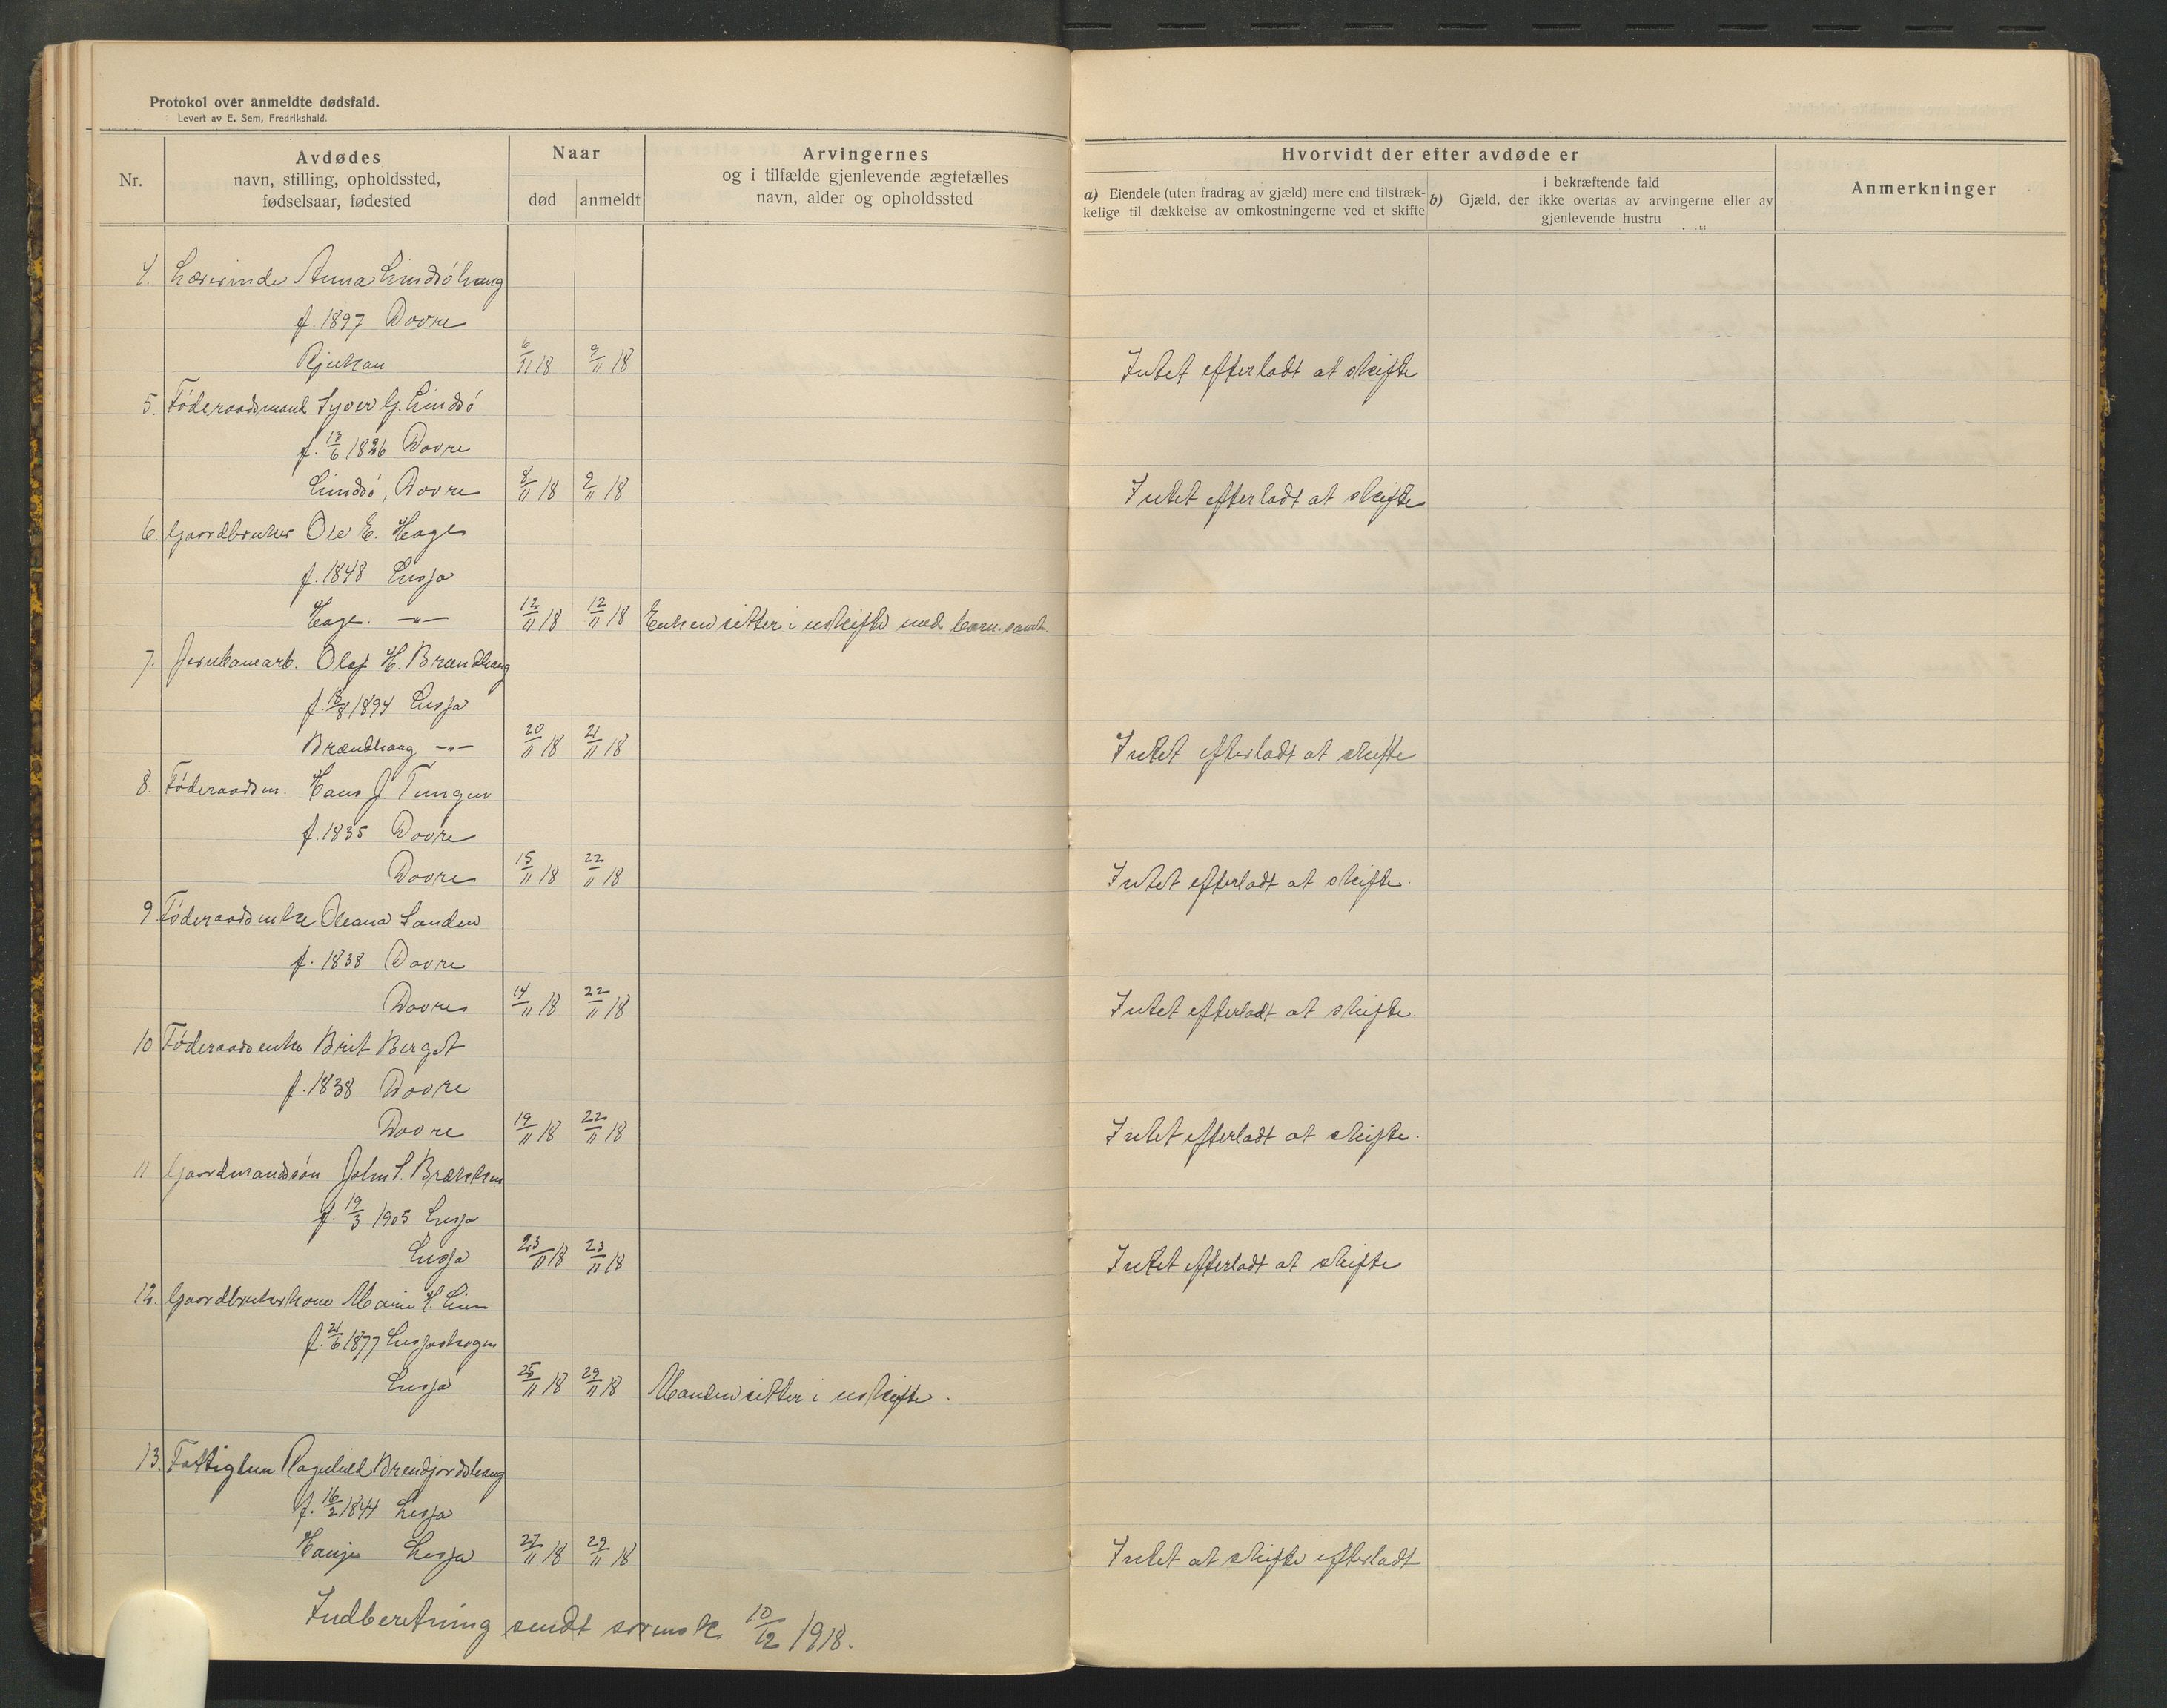 Protokol over anmeldte dødsfald.
Levert av E. Sem, Fredrikshald.
Nr.
Avdødes
navn, stilling, opholdssted,
fødselsaar, fødested
Naar
død
anmeldt
Arvingernes
og i tilfælde gjenlevende ægtefælles
navn, alder og opholdssted
Hvorvidt der efter avdøde er
a) Eiendele (uten fradrag av gjæld) mere end tilstræk-
kelige til dækkelse av omkostningerne ved et skifte
i bekræftende fald
b) Gjæld, der ikke overtas av arvingerne eller av
gjenlevende hustru
Anmerkninger
4. Lærerinde Anna Lindsöhaug
f. 1897 Dovre
Rjukan 6/11 18 9/11 18 Intet efterladt at skifte
5. Föderaadsmand Syver G. Lindsö
f. 1826 Dovre
Lindsö, Dovre 8/11 18 9/11 18 Intet efterladt at skifte
6. Gaardbruker Ole E. Hage
f. 1848 Lesja
Hage. -"- 12/11 18 12/11 18 Enken sitter i uskifte med barn samt
7. Jernbanearb. Olaf H. Brændhaug
f. 1894 Lesja
Brændhaug -"- 20/11 18 21/11 18 Intet efterladt at skifte
8. Föderaadsm. Hans J. Tungen
f. 1835 Dovre
Dovre 15/11 18 22/11 18 Intet efterladt at skifte.
9 Föderaadsenke Oleana Sanden
f. 1838 Dovre
Dovre 14/11 18 22/11 18 Intet efterladt at skifte.
10 Föderaadsenke Brit Berget
f. 1838 Dovre
Dovre 19/11 18 22/11 18 Intet efterladt at skifte.
11 Gaardmandssön John S. Brækken
f. 19/3 1905 Lesja
Lesja 23/11 18 23/11 18 Intet efterladt at skifte
12. Gaardbrukerkone Marie H. Lien
f. 21/6 1877 Lesjaskogen
Lesja 25/11 18 29/11 18 Manden sitter i uskifte.
13. Fattiglem Ragnhild Brendjordshaug
f. 16/2 1844 Lesja
Lesja 27/11 18 29/11 18 Intet at skifte efterladt
Indberetning sendt sorensk. 10/12 1918.